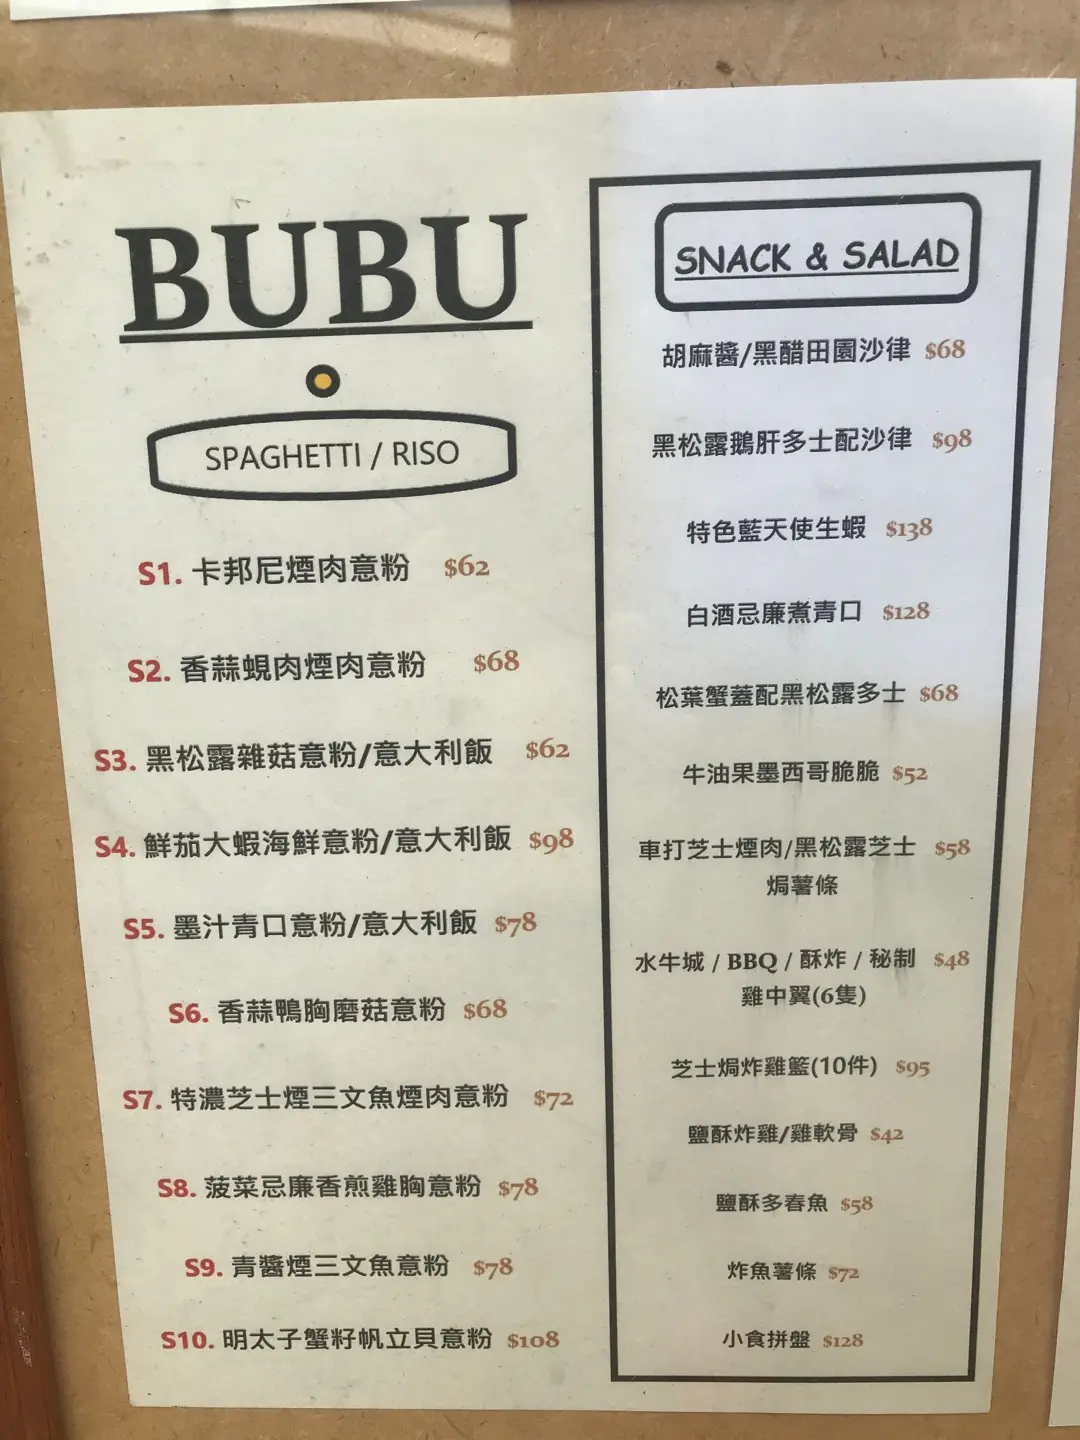 BUBU
SPAGHETTI / RISO
S1. 卡邦尼煙肉意粉 $62
S2. 香蒜蜆肉煙肉意粉 $68
S3. 黑松露雜菇意粉/意大利飯 $62
S4. 鮮茄大蝦海鮮意粉/意大利飯 $98
S5. 墨汁青口意粉/意大利飯 $78
S6. 香蒜鴨胸磨菇意粉 $68
S7. 特濃芝士煙三文魚煙肉意粉 $72
S8. 菠菜忌廉香煎雞胸意粉 $78
S9. 青醬煙三文魚意粉 $78
S10. 明太子蟹籽帆立貝意粉 $108
SNACK & SALAD
胡麻醬/黑醋田園沙律 $68
黑松露鵝肝多士配沙律 $98
特色藍天使生蝦 $138
白酒忌廉煮青口 $128
松葉蟹蓋配黑松露多士 $68
牛油果墨西哥脆脆 $52
車打芝士煙肉/黑松露芝士 $58
焗薯條
水牛城 / BBQ / 酥炸 / 秘制 $48
雞中翼(6隻)
芝士焗炸雞籃(10件) $95
鹽酥炸雞/雞軟骨 $42
鹽酥多春魚 $58
炸魚薯條 $72
小食拼盤 $128